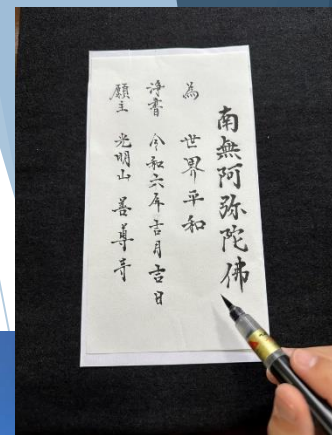 南無阿弥陀佛
為 世界平和
浄書 令和六年吉月吉日
願主 光明山 善尊寺